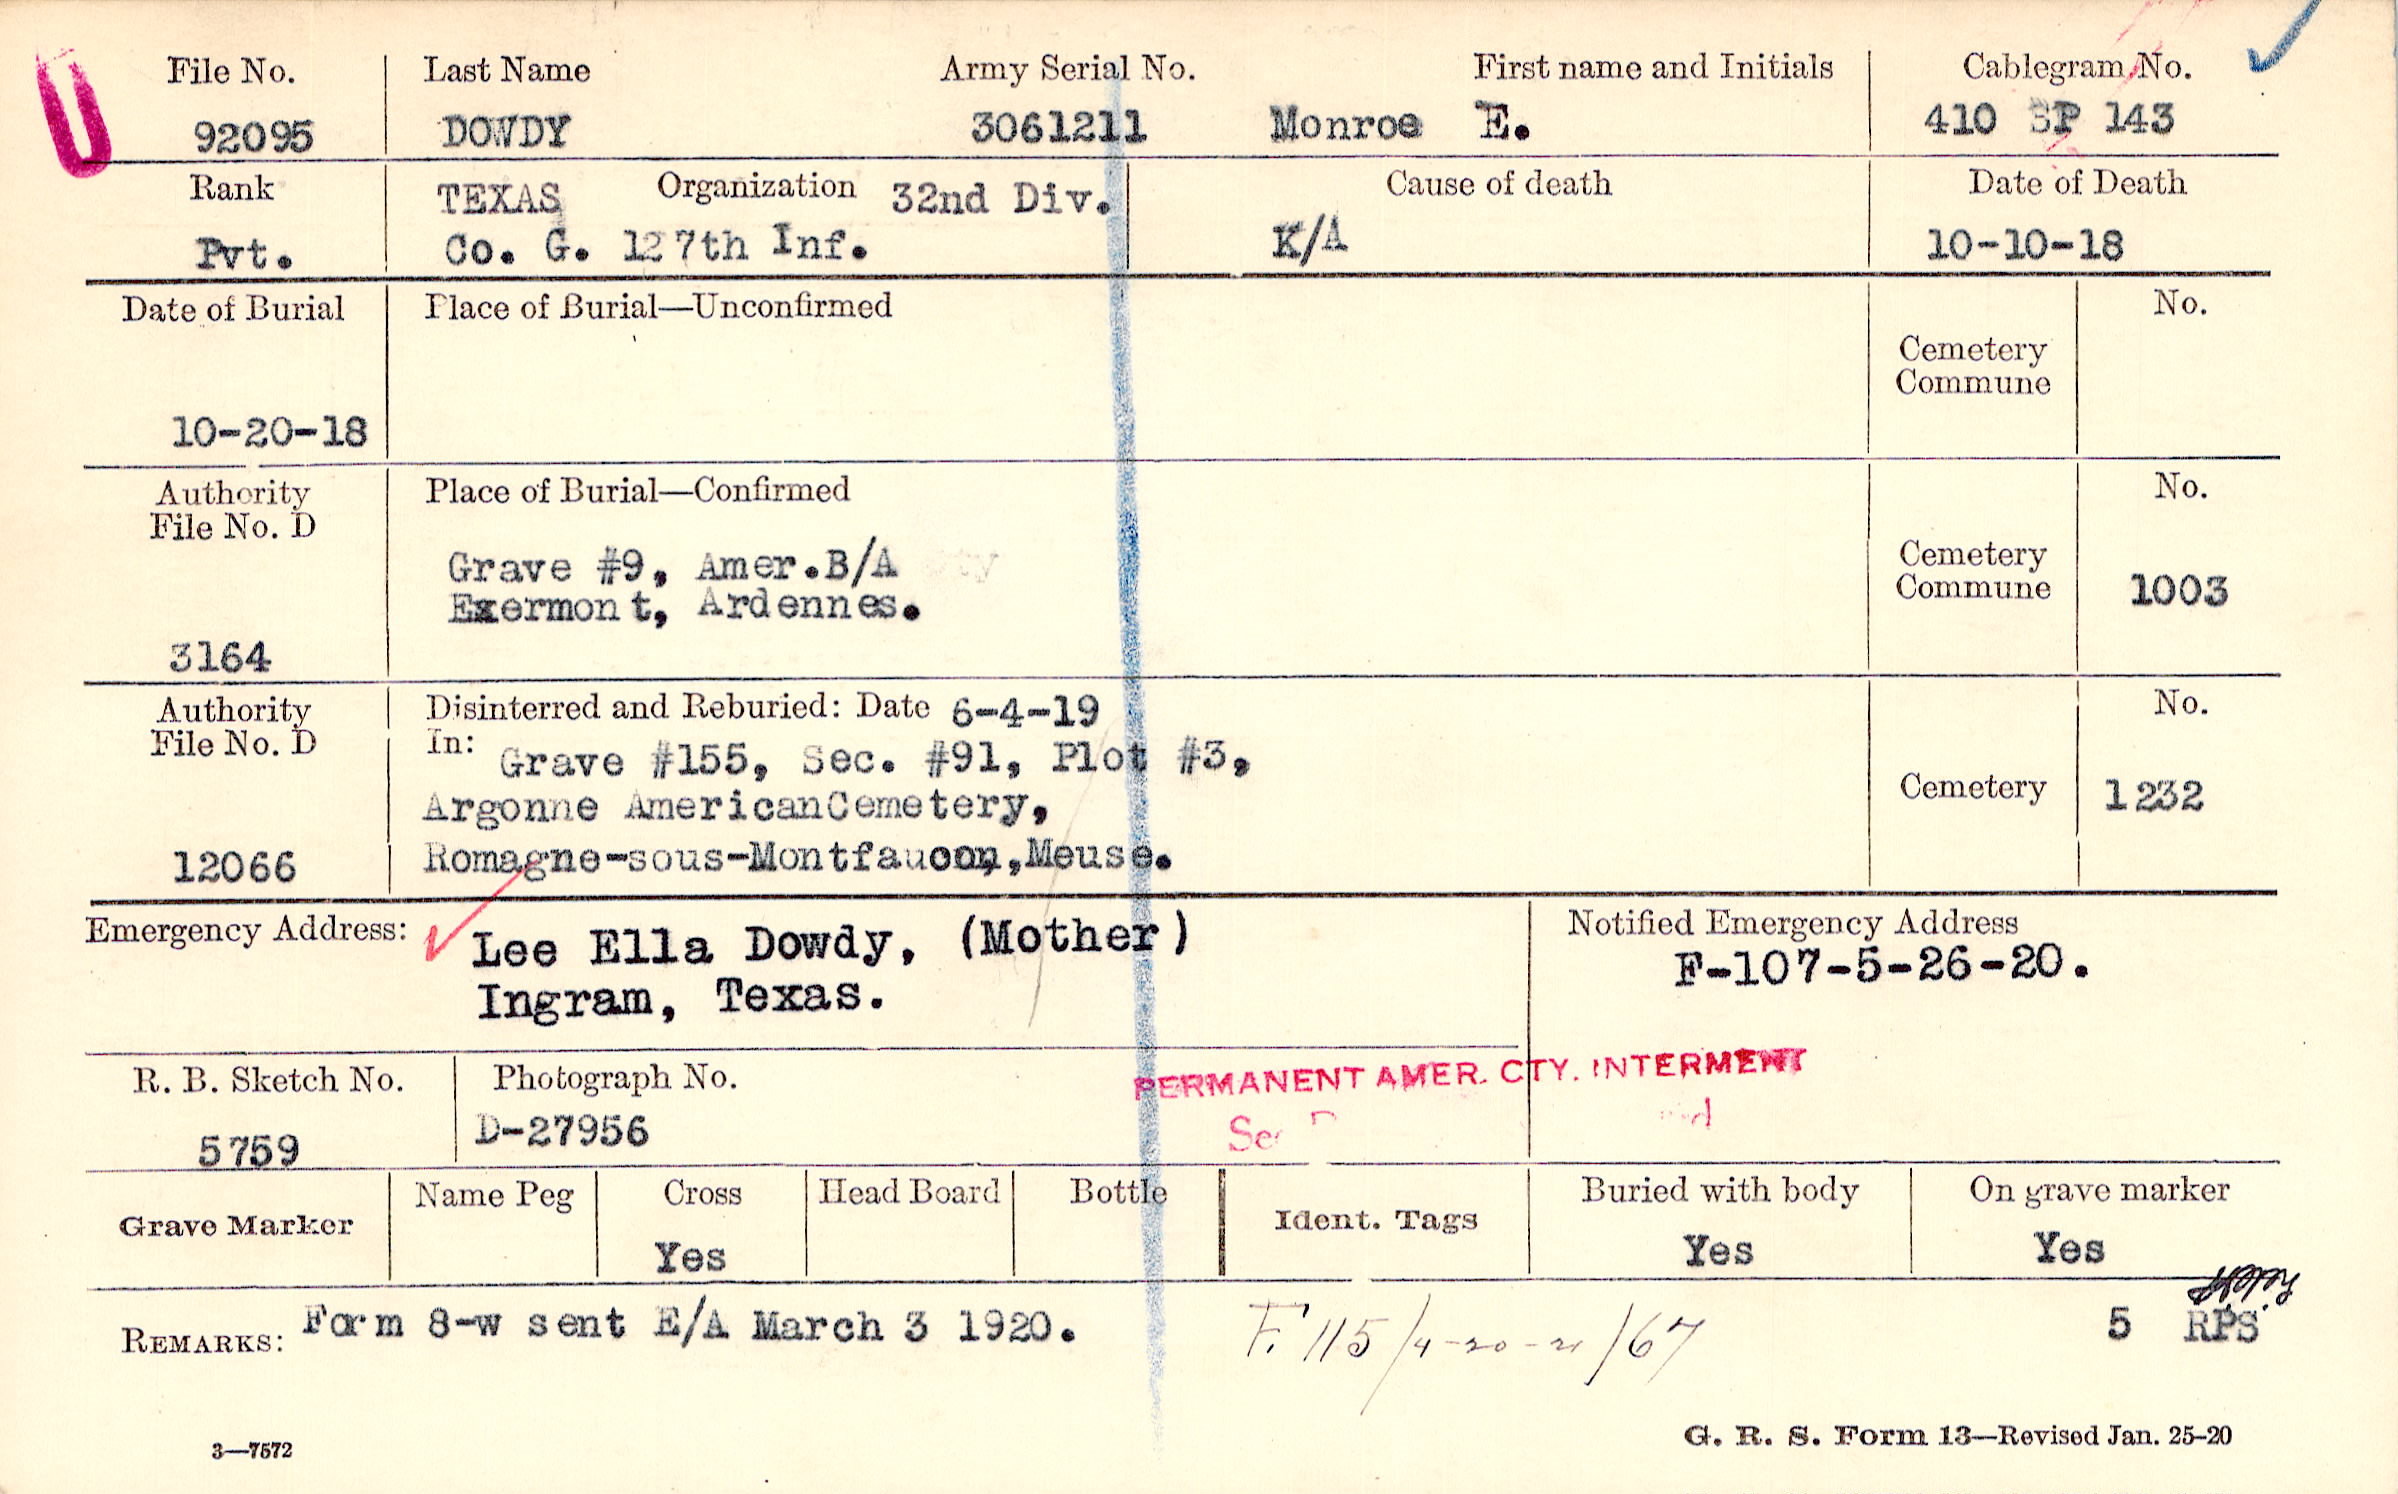 U
File No. Last Name Army Serial No. First name and Initials Cablegram No.
92095 DOWDY 3061211 Monroe E. 410 SP 143
Rank TEXAS Organization 32nd Div. Cause of death Date of Death
Pvt. Co. G. 127th Inf. K/A 10-10-18
Date of Burial Place of Burial—Unconfirmed No.
Cemetery
Commune
10-20-18
Authority Place of Burial—Confirmed No.
File No. D
Grave #9, Amer.B/A Cemetery
Exermont, Ardennes. Commune 1003
3164
Authority Disinterred and Reburied: Date 6-4-19 No.
File No. D In: Grave #155, Sec. #91, Plot #3,
Argonne AmericanCemetery, Cemetery 1232
12066 Romagne-sous-Montfaucon,Meuse.
Emergency Address: Lee Ella Dowdy, (Mother) Notified Emergency Address
Ingram, Texas. F-107-5-26-20.
R. B. Sketch No. Photograph No. PERMANENT AMER. CTY. INTERMENT
5759 D-27956
Grave Marker Name Peg Cross Head Board Bottle Ident. Tags Buried with body On grave marker
Yes Yes Yes
REMARKS: Form 8-w sent E/A March 3 1920. F. 115/4-20-21/67 5 RPS
3—7572 G. R. S. Form 13—Revised Jan. 25-20